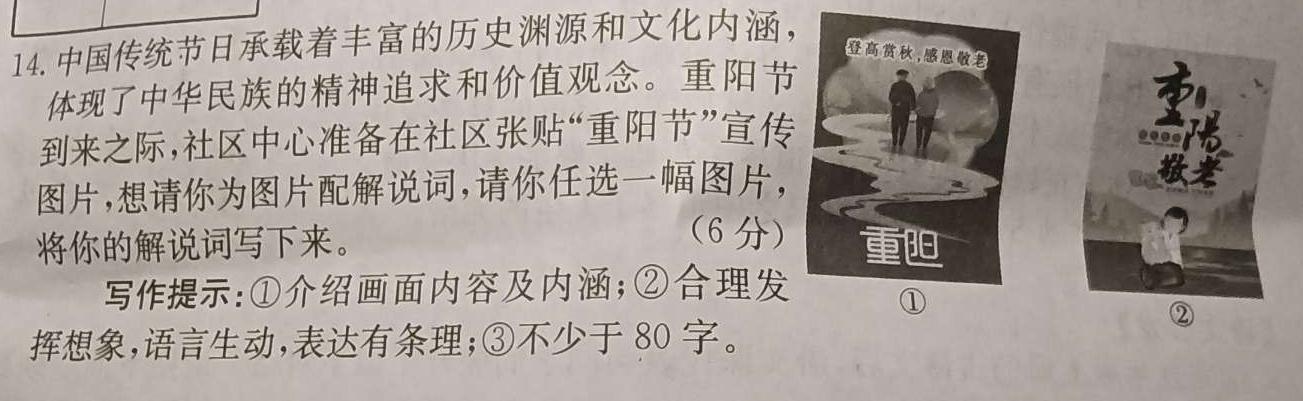 14. 中国传统节日承载着丰富的历史渊源和文化内涵，
体现了中华民族的精神追求和价值观念。重阳节
到来之际,社区中心准备在社区张贴“重阳节”宣传
图片,想请你为图片配解说词,请你任选一幅图片,
将你的解说词写下来。 （6 分）
写作提示:①介绍画面内容及内涵;②合理发
挥想象,语言生动,表达有条理;③不少于 80 字。
登高赏秋,感恩敬老
重阳
①
重陽
敬老
②